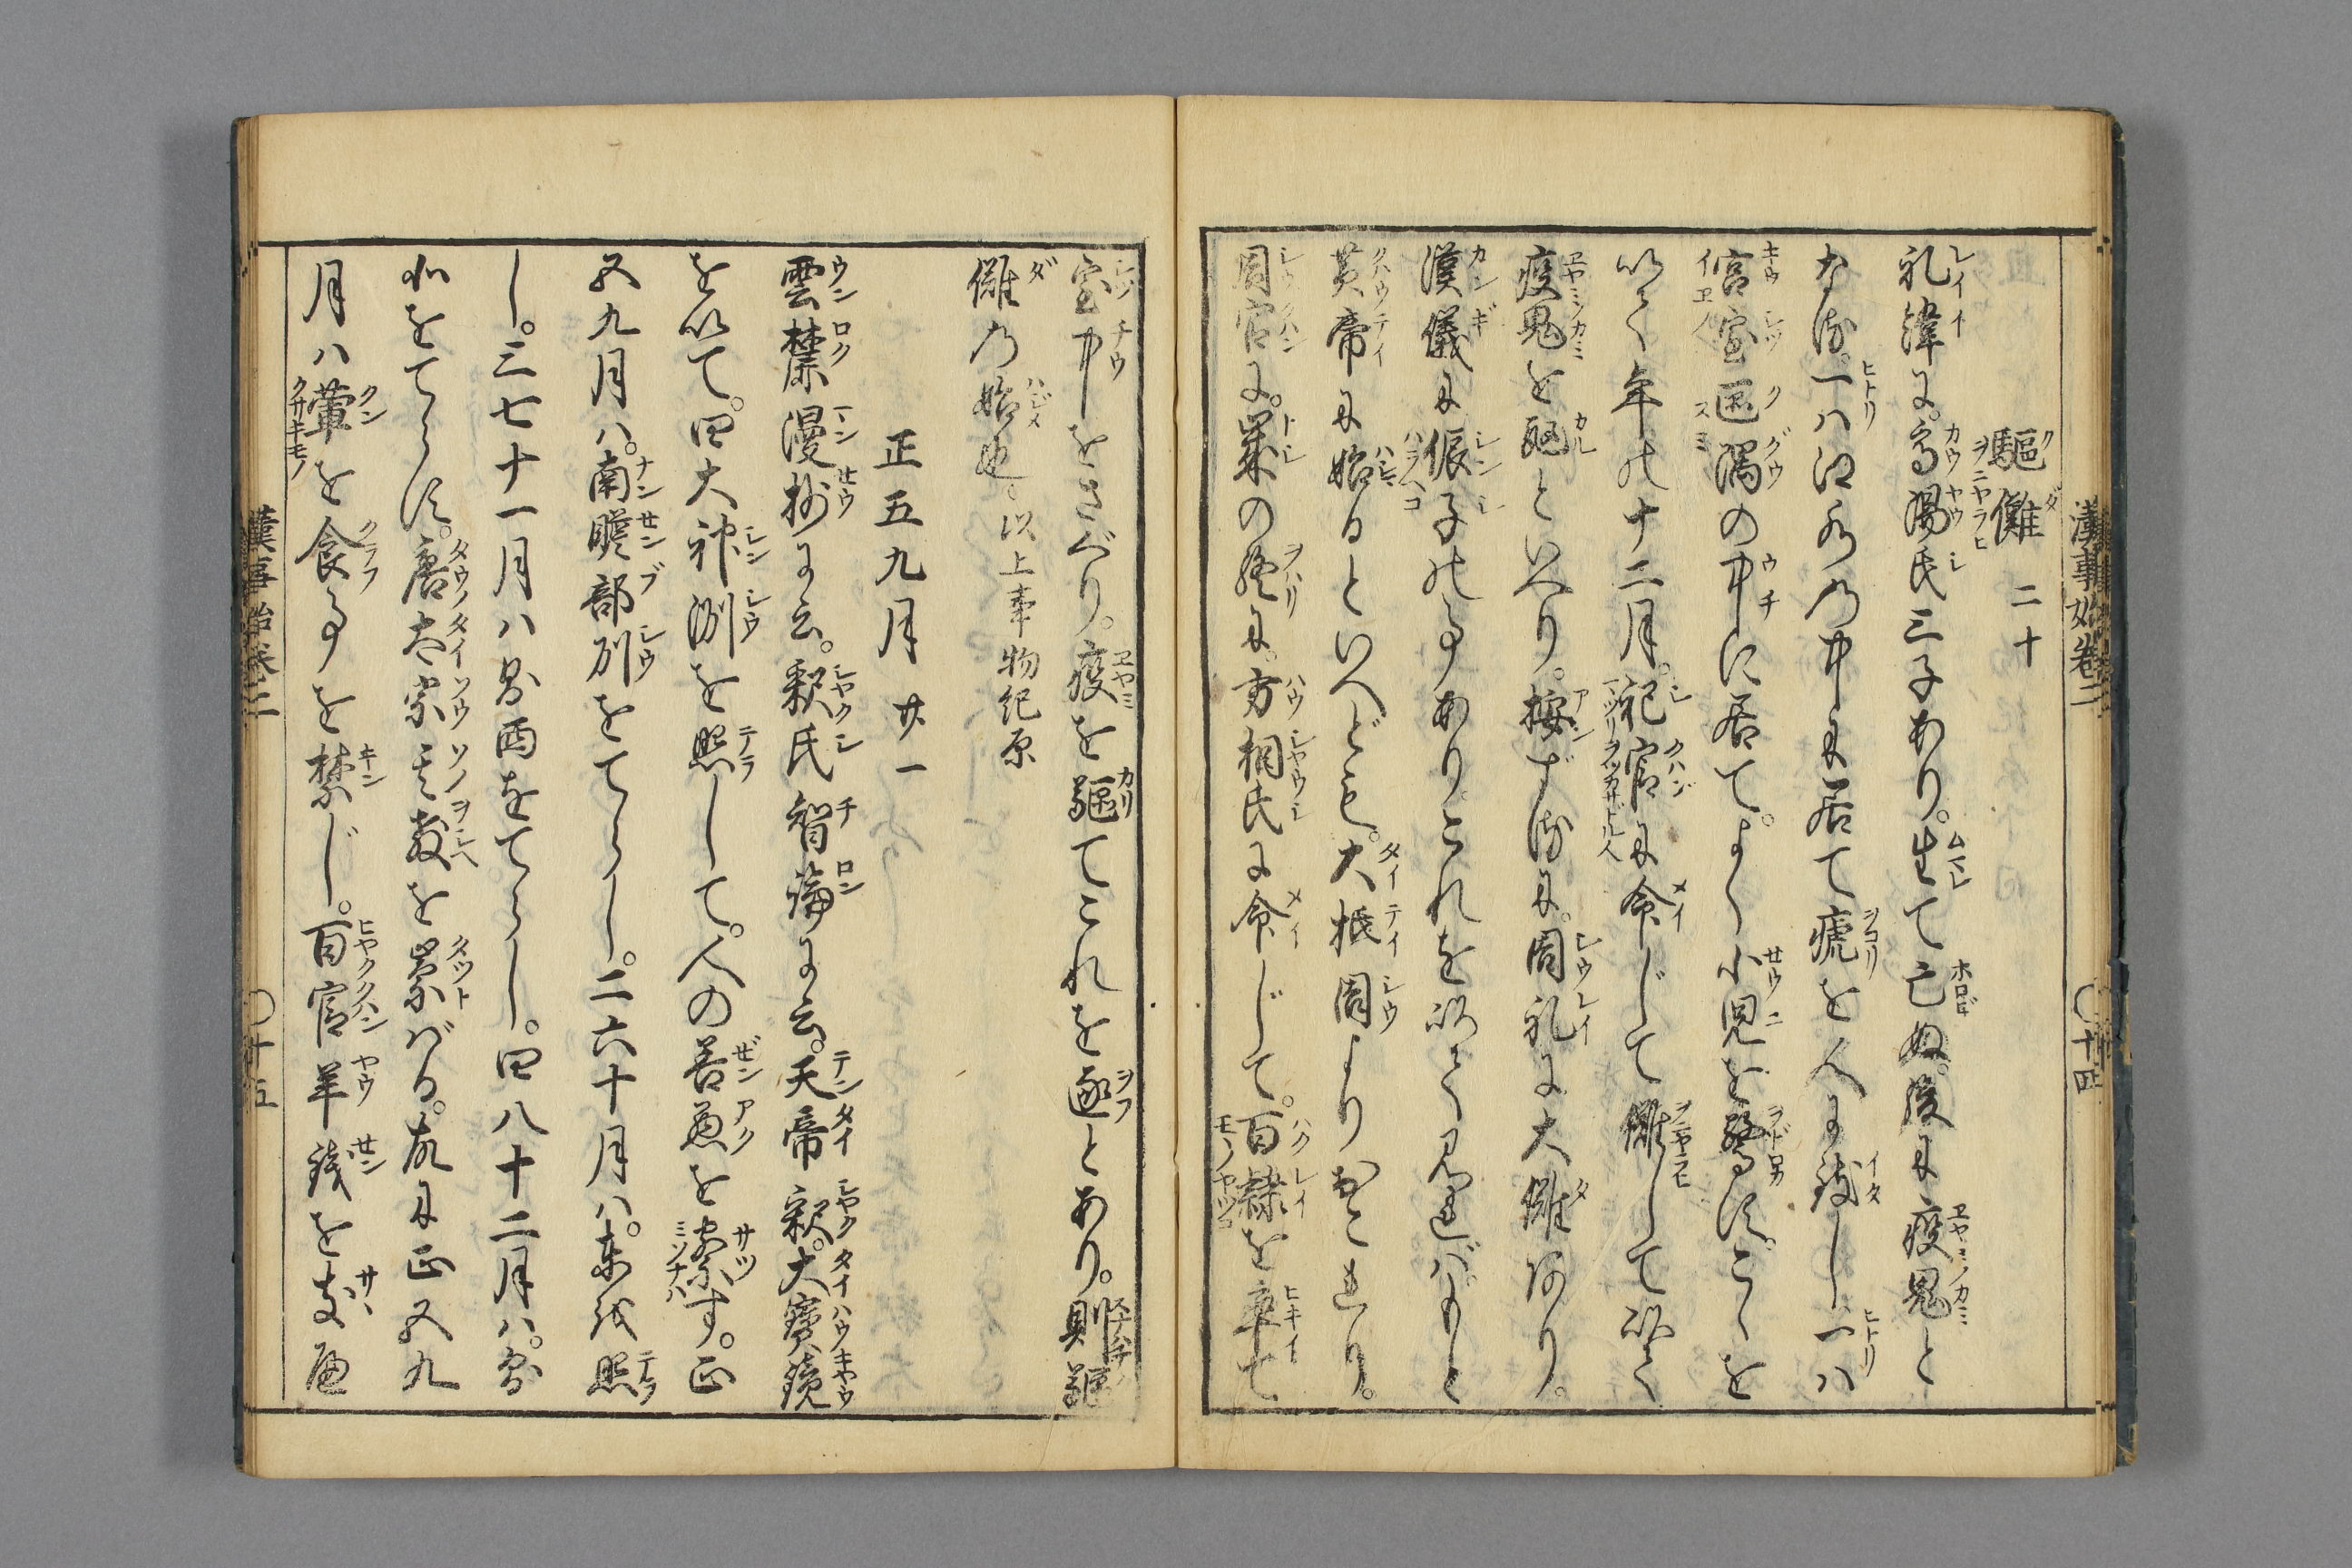 漢事始巻二 〇十四
驅儺 二十
礼緯に。高陽氏三子あり。生て亡ぬ。後に疫鬼と
なる。一ハ江水の中に居て瘧を人に致し一ハ
宮室區隅の中に居て。よく小児を驚す。こゝを
以て年の十二月。祀官に命じて儺して以て
疫鬼を駆といへり。按ずるに。周礼に大儺あり。
漢儀に侲子の事あり。これを以て見れば。もと
黄帝に始るといへども。大抵周よりおこれり。
周官に。歳の終に。方相氏に命じて。百隷を率て
室中をさぐり。疫を驅てこれを逐とあり。則驅
儺の始也。以上事物紀原
正五九月 廿一
雲麓漫抄に云。釈氏智論に云。天帝釈。大寶鏡
を以て。四大神洲を照して。人の善惡を察す。正
五九月ハ。南瞻部州をてらし。二六十月ハ。東弗を照
し。三七十一月ハ西をてらし。四八十二月ハ。
北をてらす。唐太宗其教を崇ばる。故に正五九
月ハ葷を食ふ事を禁じ。百官羊錢を支
漢事始巻二 〇十五